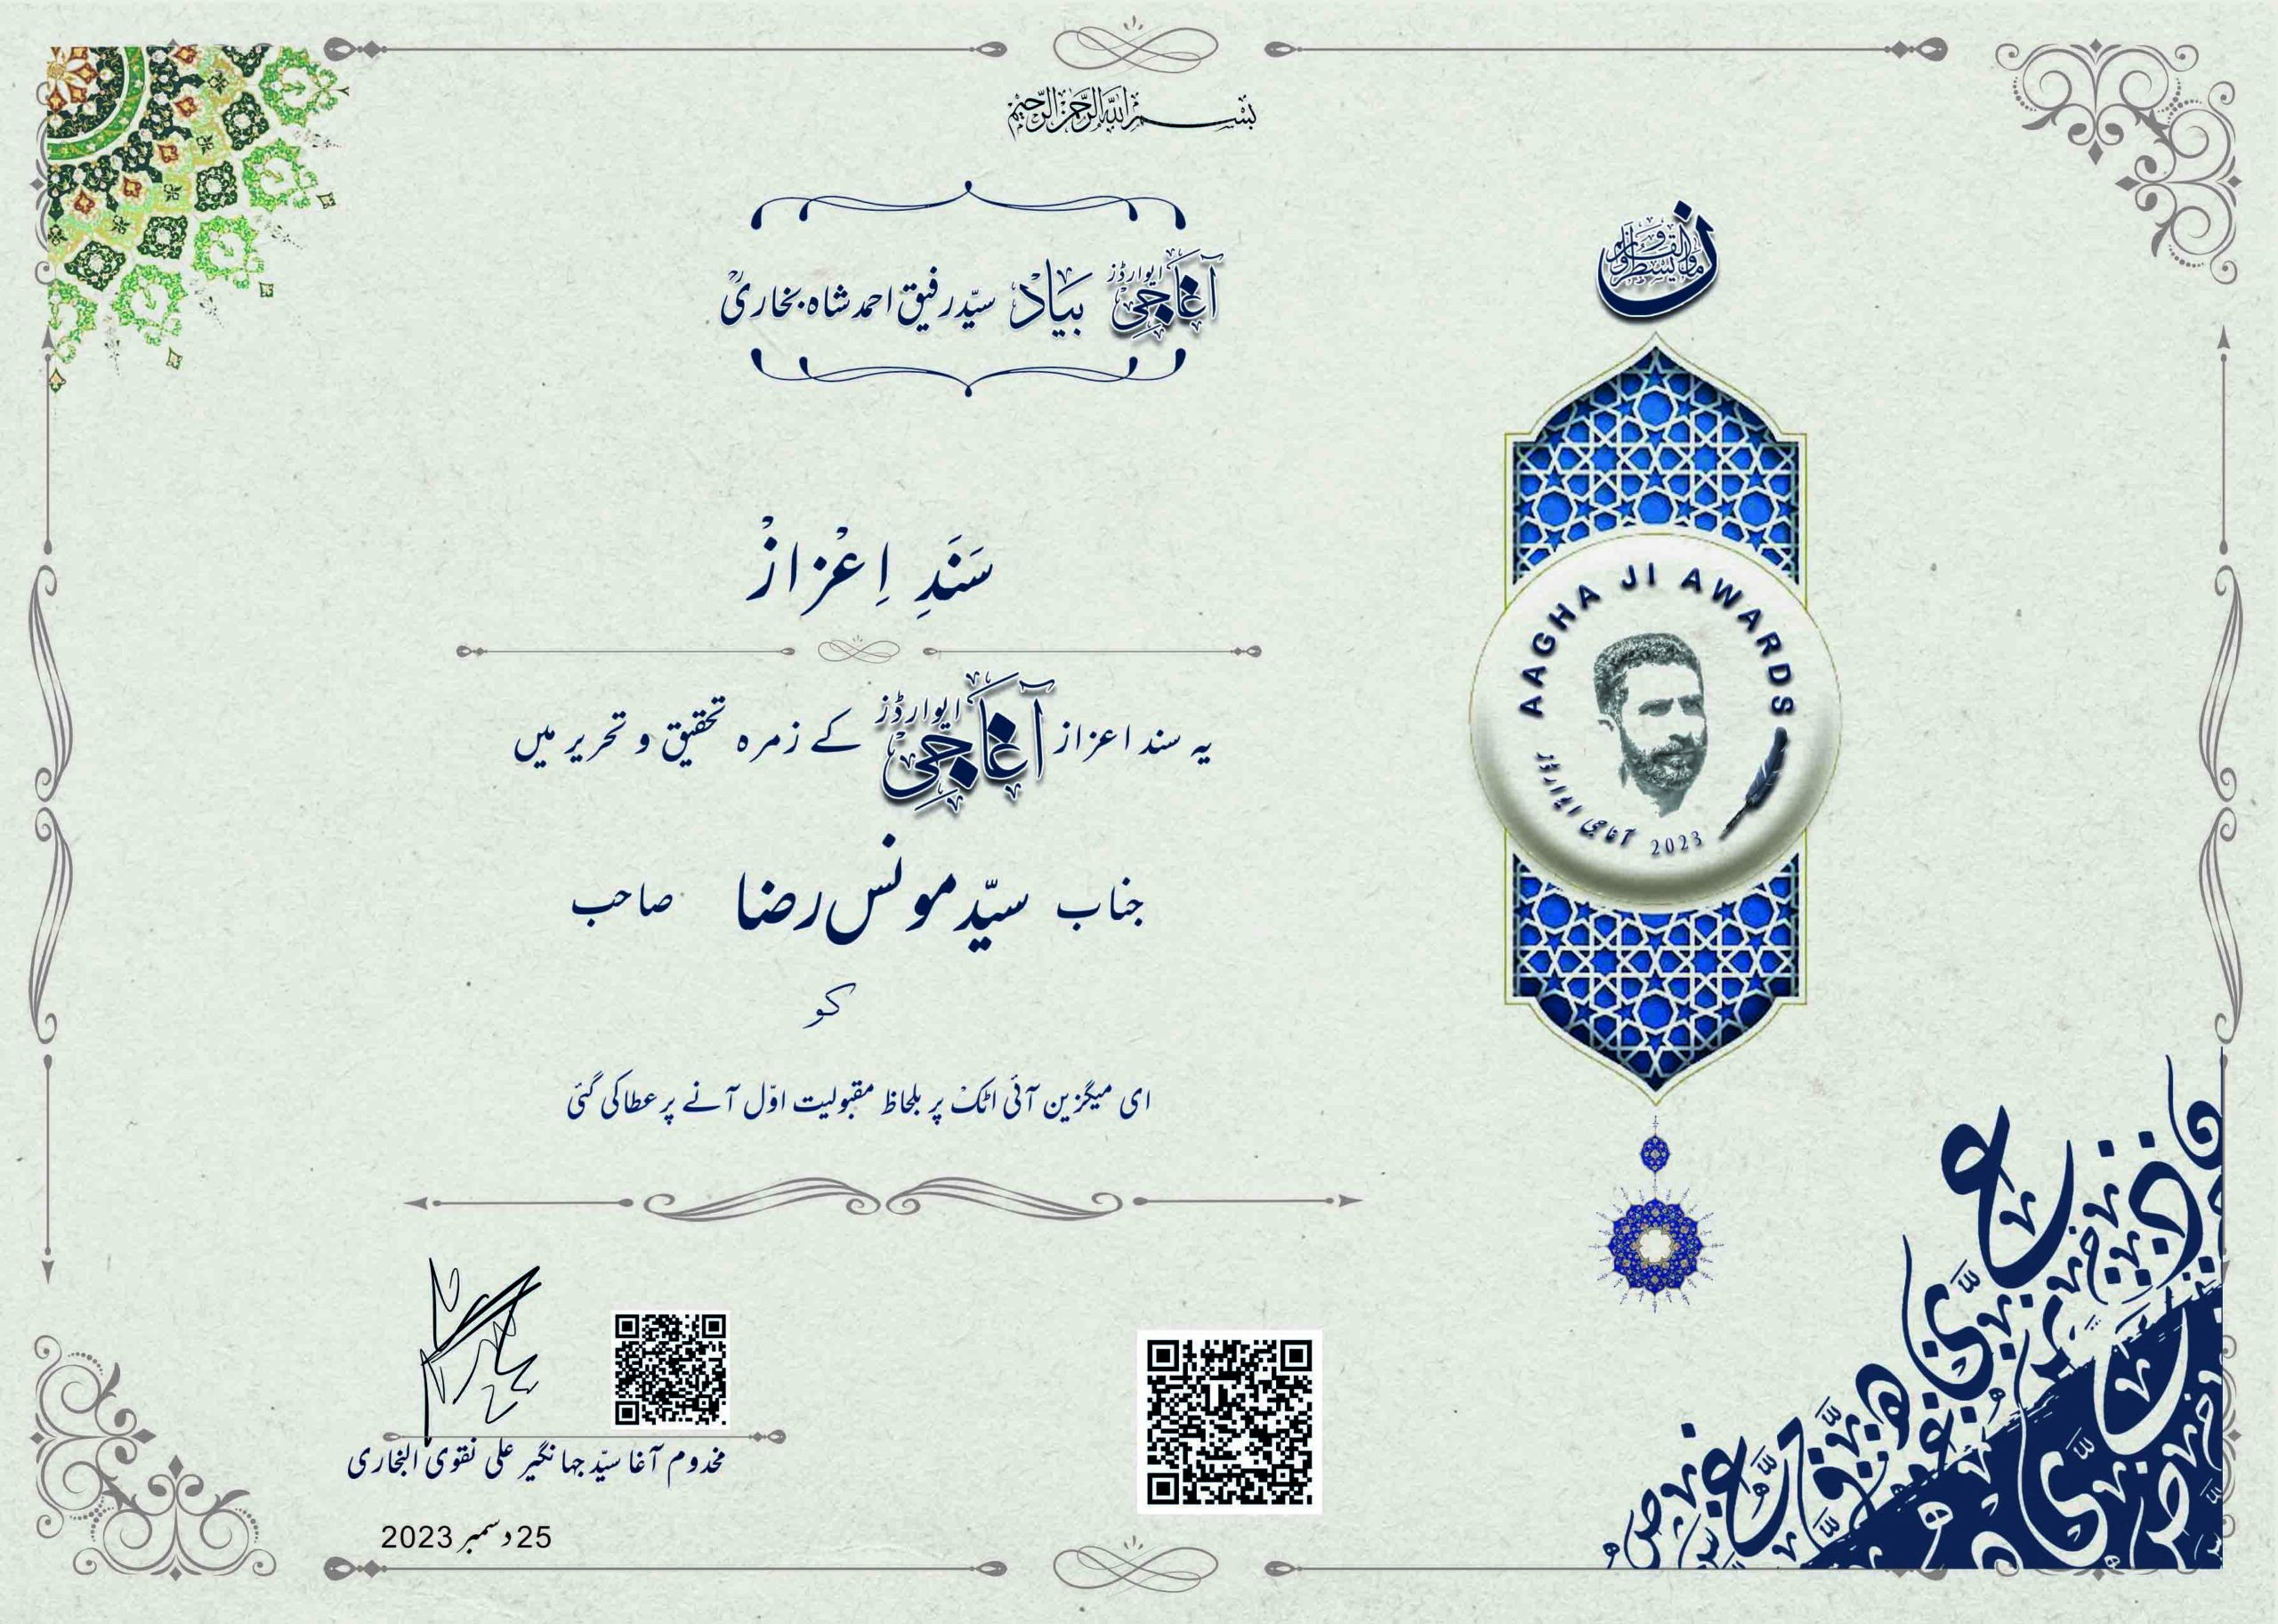 بسم الله الرحمن الرحيم
آغا جی ایوارڈز بیاد سیّد رفیق احمد شاہ بخاریؒ
ن والقلم وما يسطرون
سَنَدِ اِعْزازْ
یہ سند اعزاز آغا جی ایوارڈز کے زمرہ تحقیق و تحریر میں
جناب سیّد مونس رضا صاحب
کو
ای میگزین آئی اٹک پر بلحاظ مقبولیت اوّل آنے پر عطا کی گئی
AAGHA JI AWARDS
آغا جی ایوارڈز 2023
مخدوم آغا سیّد جہانگیر علی نقوی البخاری
25 دسمبر 2023